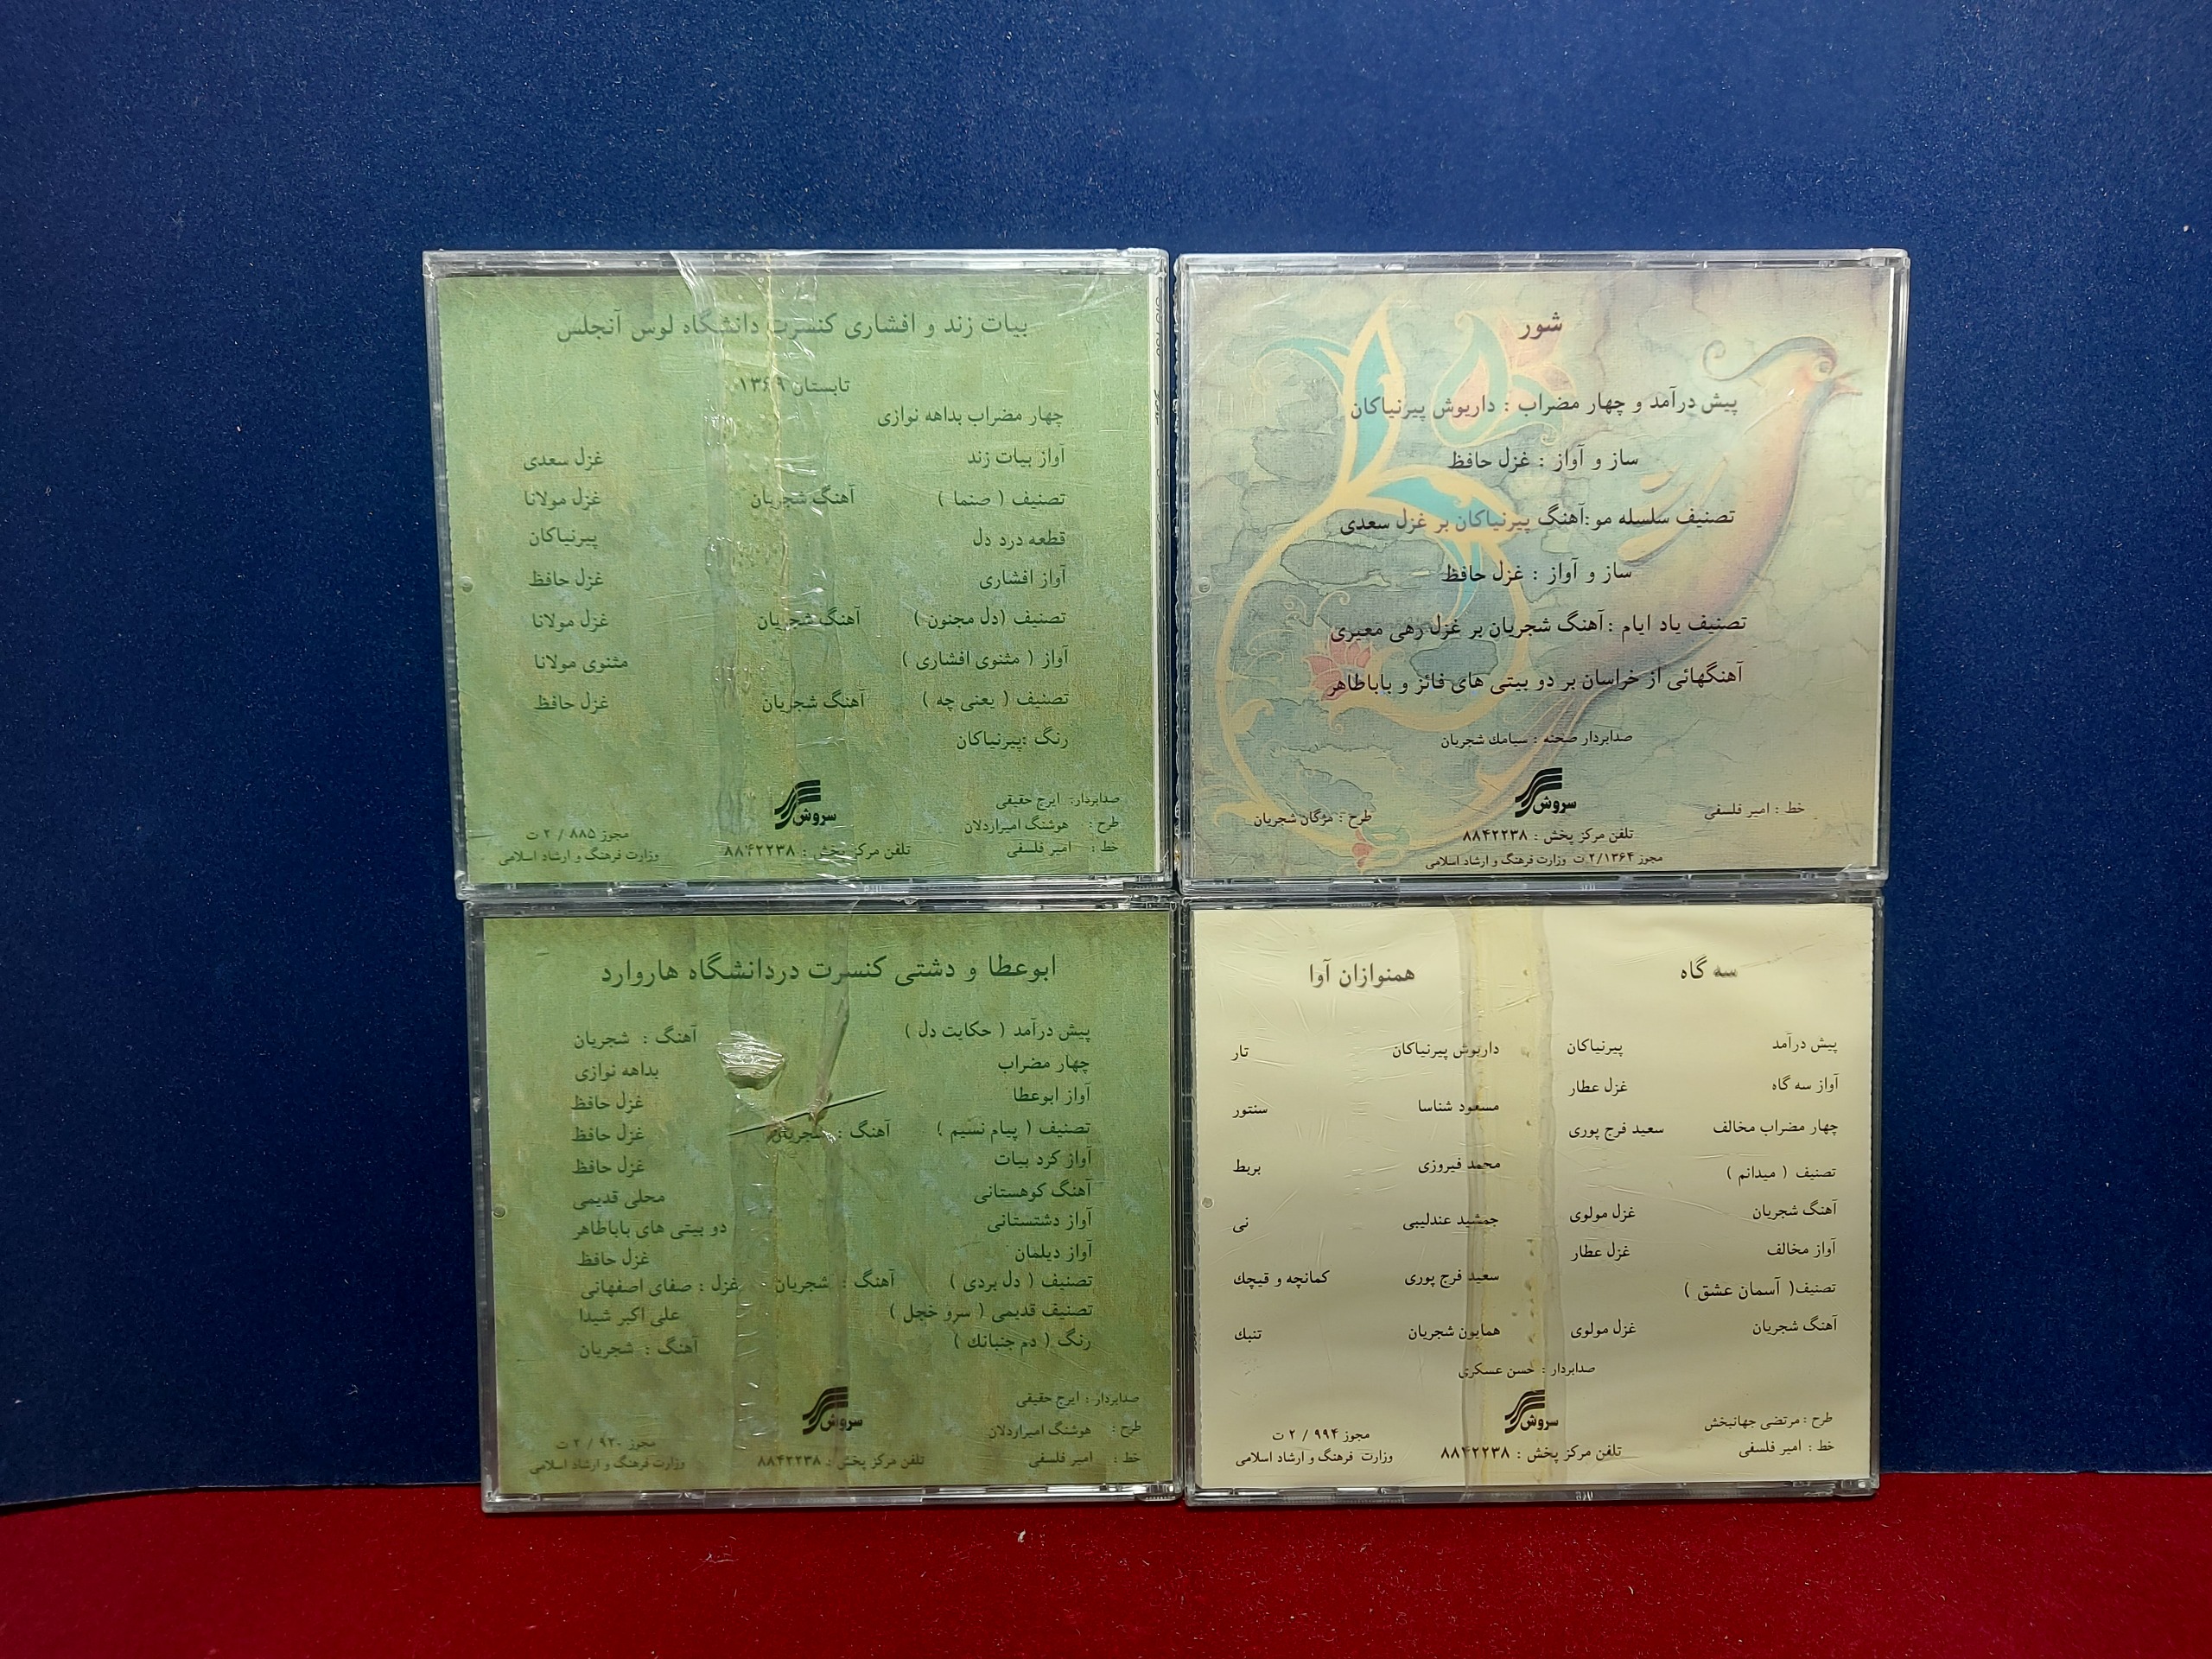 بیات زند و افشاری کنسرت دانشگاه لوس آنجلس
تابستان ۱۳۶۹
چهار مضراب بداهه نوازی
آواز بیات زند غزل سعدی
تصنیف ( صنما ) آهنگ شجریان غزل مولانا
قطعه درد دل پیرنیاکان
آواز افشاری غزل حافظ
تصنیف (دل مجنون ) آهنگ شجریان غزل مولانا
آواز ( مثنوی افشاری ) مثنوی مولانا
تصنیف ( یعنی چه ) آهنگ شجریان غزل حافظ
رنگ :پیرنیاکان
صدابردار: ایرج حقیقی
طرح : هوشنگ امیراردلان
خط : امیر فلسفی
سروش
تلفن مرکز پخش : ۸۸۴۲۲۳۸
مجوز ۸۸۵ / ۲ ت
وزارت فرهنگ و ارشاد اسلامی
شور
پیش درآمد و چهار مضراب : داریوش پیرنیاکان
ساز و آواز : غزل حافظ
تصنیف سلسله مو:آهنگ پیرنیاکان بر غزل سعدی
ساز و آواز : غزل حافظ
تصنیف یاد ایام :آهنگ شجریان بر غزل رهی معیری
آهنگهائی از خراسان بر دو بیتی های فائز و باباطاهر
صدابردار صحنه : سیامك شجریان
خط : امیر فلسفی
سروش
طرح : مژگان شجریان
تلفن مرکز پخش : ۸۸۴۲۲۳۸
مجوز ۲/۱۳۶۴ ت وزارت فرهنگ و ارشاد اسلامی
ابوعطا و دشتی کنسرت دردانشگاه هاروارد
پیش درآمد ( حکایت دل ) آهنگ : شجریان
چهار مضراب بداهه نوازی
آواز ابوعطا غزل حافظ
تصنیف ( پیام نسیم ) آهنگ : شجریان غزل حافظ
آواز کرد بیات غزل حافظ
آهنگ کوهستانی محلی قدیمی
آواز دشتستانی دو بیتی های باباطاهر
آواز دیلمان غزل حافظ
تصنیف ( دل بردی ) آهنگ : شجریان غزل : صفای اصفهانی
تصنیف قدیمی ( سرو خجل ) علی اکبر شیدا
رنگ ( دم جنبانك ) آهنگ : شجریان
صدابردار : ایرج حقیقی
طرح : هوشنگ امیراردلان
خط : امیر فلسفی
سروش
تلفن مرکز پخش : ۸۸۴۲۲۳۸
مجوز ۹۲۰ / ۲ ت
وزارت فرهنگ و ارشاد اسلامی
سه گاه
پیش درآمد پیرنیاکان
آواز سه گاه غزل عطار
چهار مضراب مخالف سعید فرج پوری
تصنیف ( میدانم )
آهنگ شجریان غزل مولوی
آواز مخالف غزل عطار
تصنیف( آسمان عشق )
آهنگ شجریان غزل مولوی
همنوازان آوا
داریوش پیرنیاکان تار
مسعود شناسا سنتور
محمد فیروزی بربط
جمشید عندلیبی نی
سعید فرج پوری کمانچه و قیچك
همایون شجریان تنبك
صدابردار : حسن عسکری
طرح : مرتضی جهانبخش
خط : امیر فلسفی
سروش
تلفن مرکز پخش : ۸۸۴۲۲۳۸
مجوز ۹۹۴ / ۲ ت
وزارت فرهنگ و ارشاد اسلامی